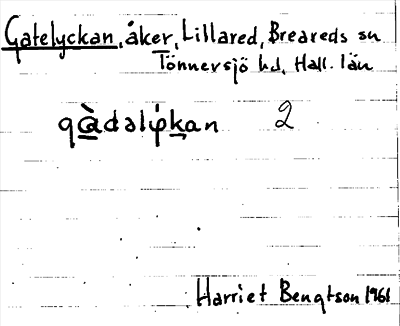 Gatelyckan, åker, Lillared, Breareds sn
Tönnersjö hd, Hall. län
2
Harriet Bengtson 1961